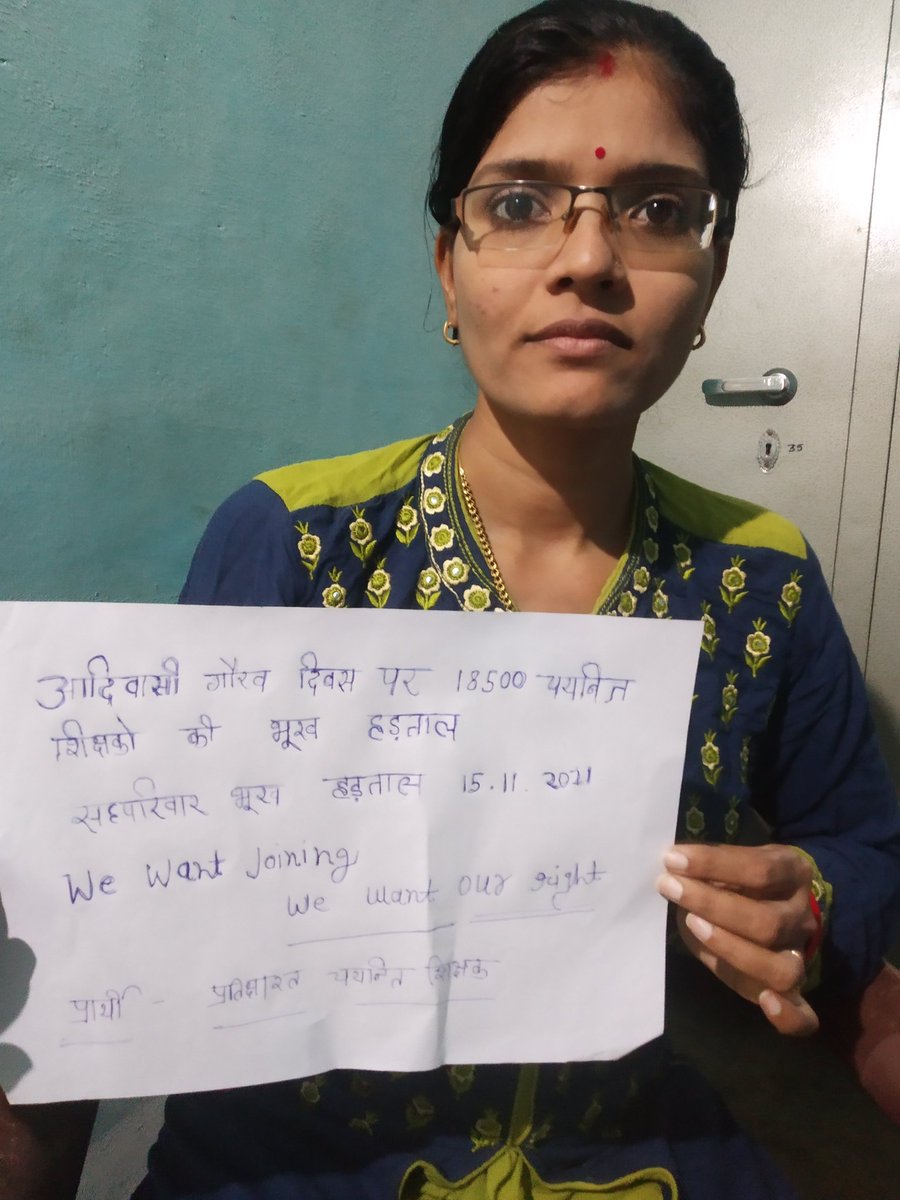 आदिवासी गौरव दिवस पर 18500 चयनित
शिक्षको की भूख हड़ताल
सहपरिवार भूख हड़ताल 15.11.2021
We Want Joining
We want our right
प्रार्थी - प्रतिक्षारत चयनित शिक्षक
35